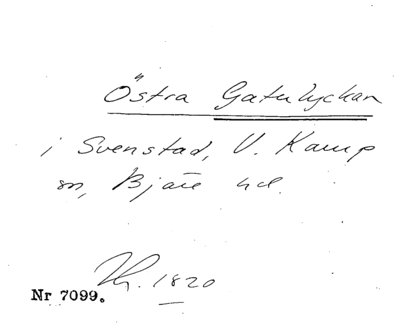 Östra Gatulyckan
i Svenstad, V. Karup
sn, Bjäre hd.
Lh. 1820
Nr 7099.